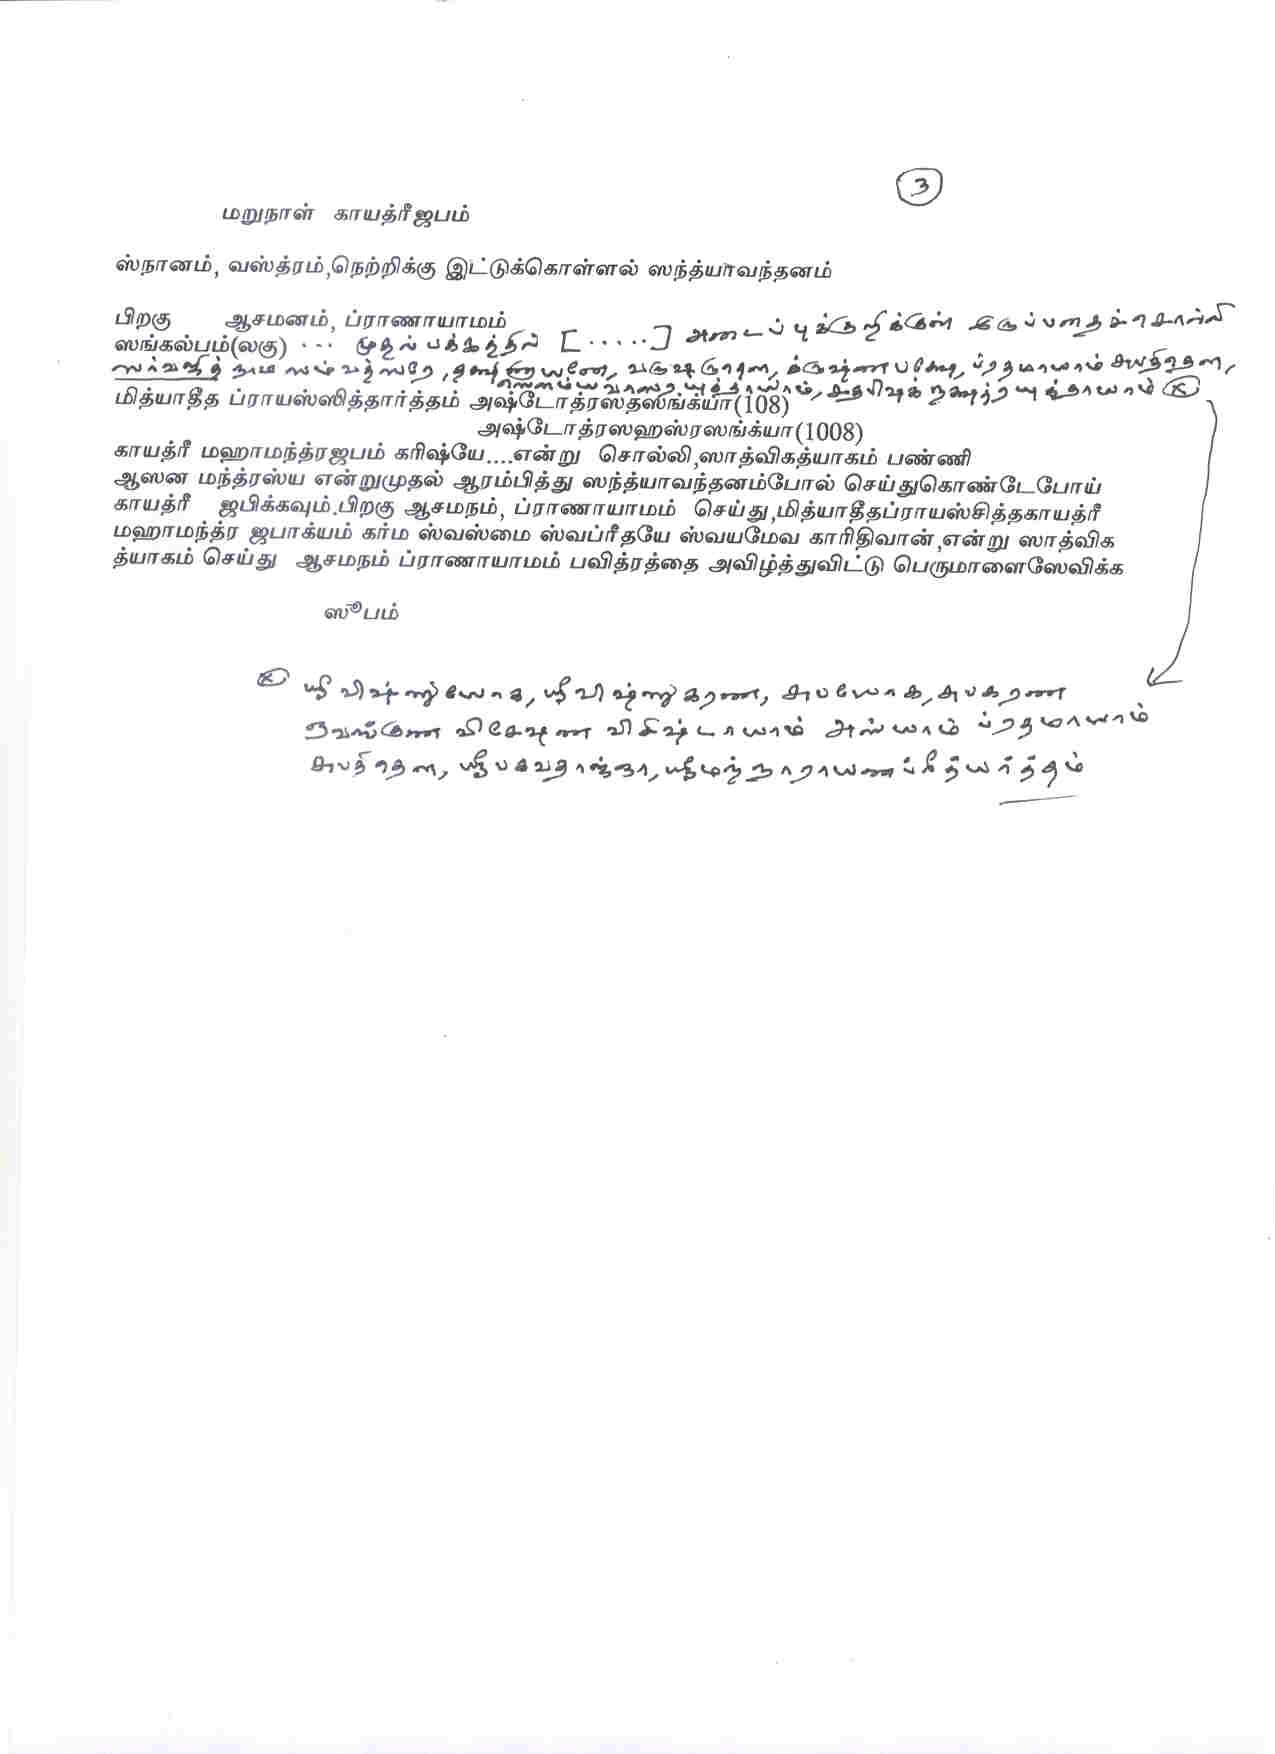 3
மறுநாள் காயத்ரீஜபம்
ஸ்நானம், வஸ்த்ரம்,நெற்றிக்கு இட்டுக்கொள்ளல் ஸந்த்யாவந்தனம்
பிறகு ஆசமனம், ப்ராணாயாமம்
ஸங்கல்பம்(லகு) ... முதல் பக்கத்தில் [.....] அடைப்புக்குறிக்குள் இருப்பதைச்சொல்லி
ஸர்வஜித் நாம ஸம்வத்ஸரே, தக்ஷிணாயனே, வருஷருதௌ, க்ருஷ்ணபக்ஷே, ப்ரதமாயாம் சுபதிதௌ,
ஸௌம்யவாஸரயுக்தாயாம், சதபிஷக் நக்ஷத்ர யுக்தாயாம்
மித்யாதீத ப்ராயஸ்ஸித்தார்த்தம் அஷ்டோத்ரஸதஸங்க்யா(108)
அஷ்டோத்ரஸஹஸ்ரஸங்க்யா(1008)
காயத்ரீ மஹாமந்த்ரஜபம் கரிஷ்யே....என்று சொல்லி,ஸாத்விகத்யாகம் பண்ணி
ஆஸன மந்த்ரஸ்ய என்றுமுதல் ஆரம்பித்து ஸந்த்யாவந்தனம்போல் செய்துகொண்டேபோய்
காயத்ரீ ஜபிக்கவும்.பிறகு ஆசமநம், ப்ராணாயாமம் செய்து,மித்யாதீதப்ராயஸ்சித்தகாயத்ரீ
மஹாமந்த்ர ஜபாக்யம் கர்ம ஸ்வஸ்மை ஸ்வப்ரீதயே ஸ்வயமேவ காரிதிவான்,என்று ஸாத்விக
த்யாகம் செய்து ஆசமநம் ப்ராணாயாமம் பவித்ரத்தை அவிழ்த்துவிட்டு பெருமாளைஸேவிக்க
ஸூபம்
ஸ்ரீ விஷ்ணுயோக, ஸ்ரீ விஷ்ணுகரண, சுபயோக, சுபகரண
ஏவங்குண விசேஷண விசிஷ்டாயாம் அஸ்யாம் ப்ரதமாயாம்
சுபதிதௌ, ஸ்ரீபகவதாஜ்ஞா, ஸ்ரீமந்நாராயணப்ரீத்யர்த்தம்